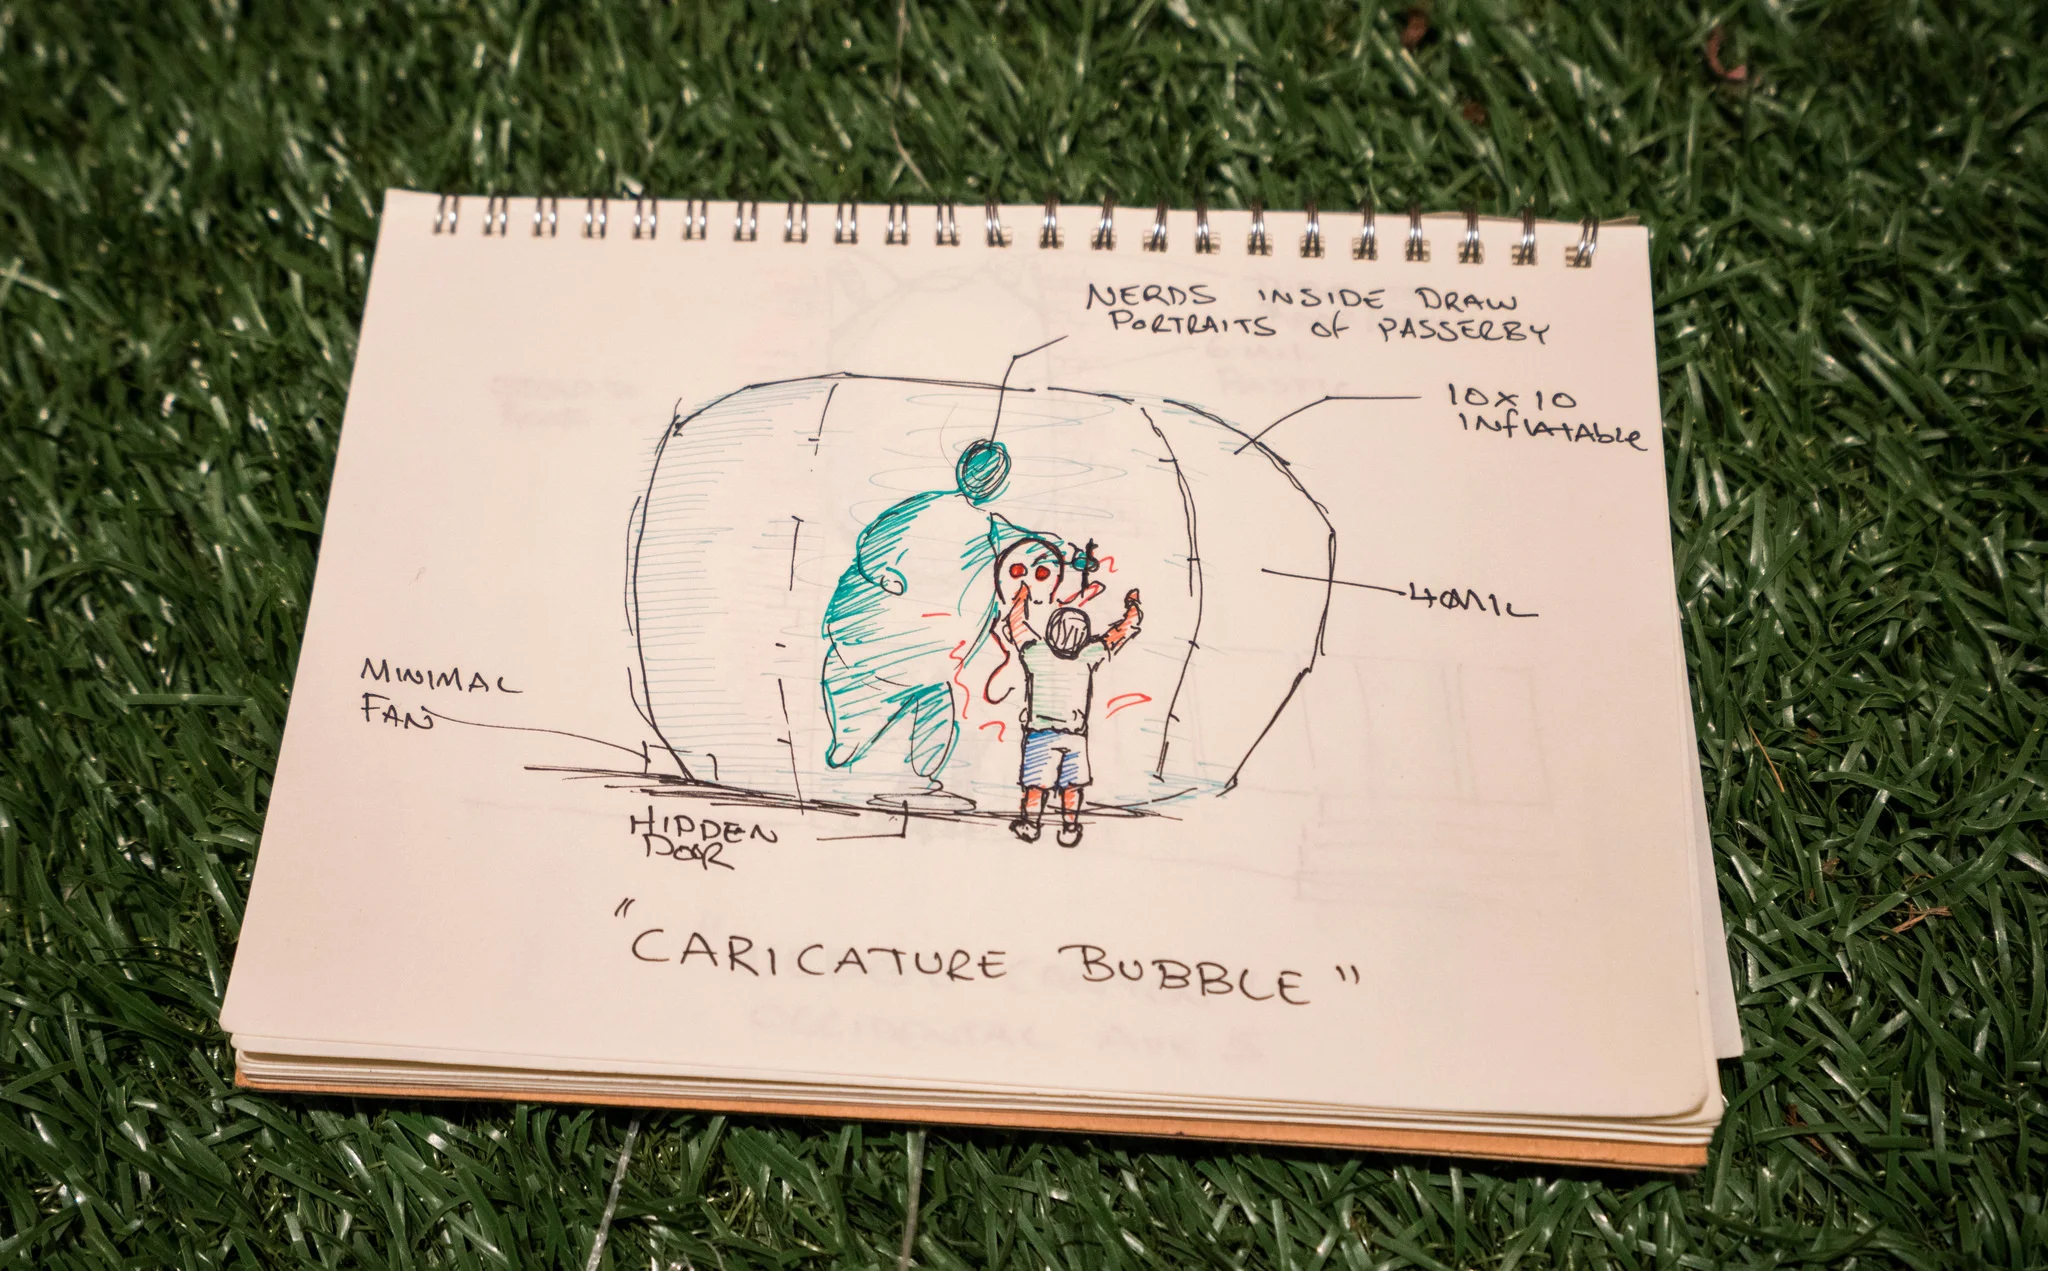 NERDS INSIDE DRAW
PORTRAITS of PASSERBY
10x10
INflATAble
40MIL
MINIMAL
FAN
HIDDEN
DOOR
"CARICATURE BUBBLE"